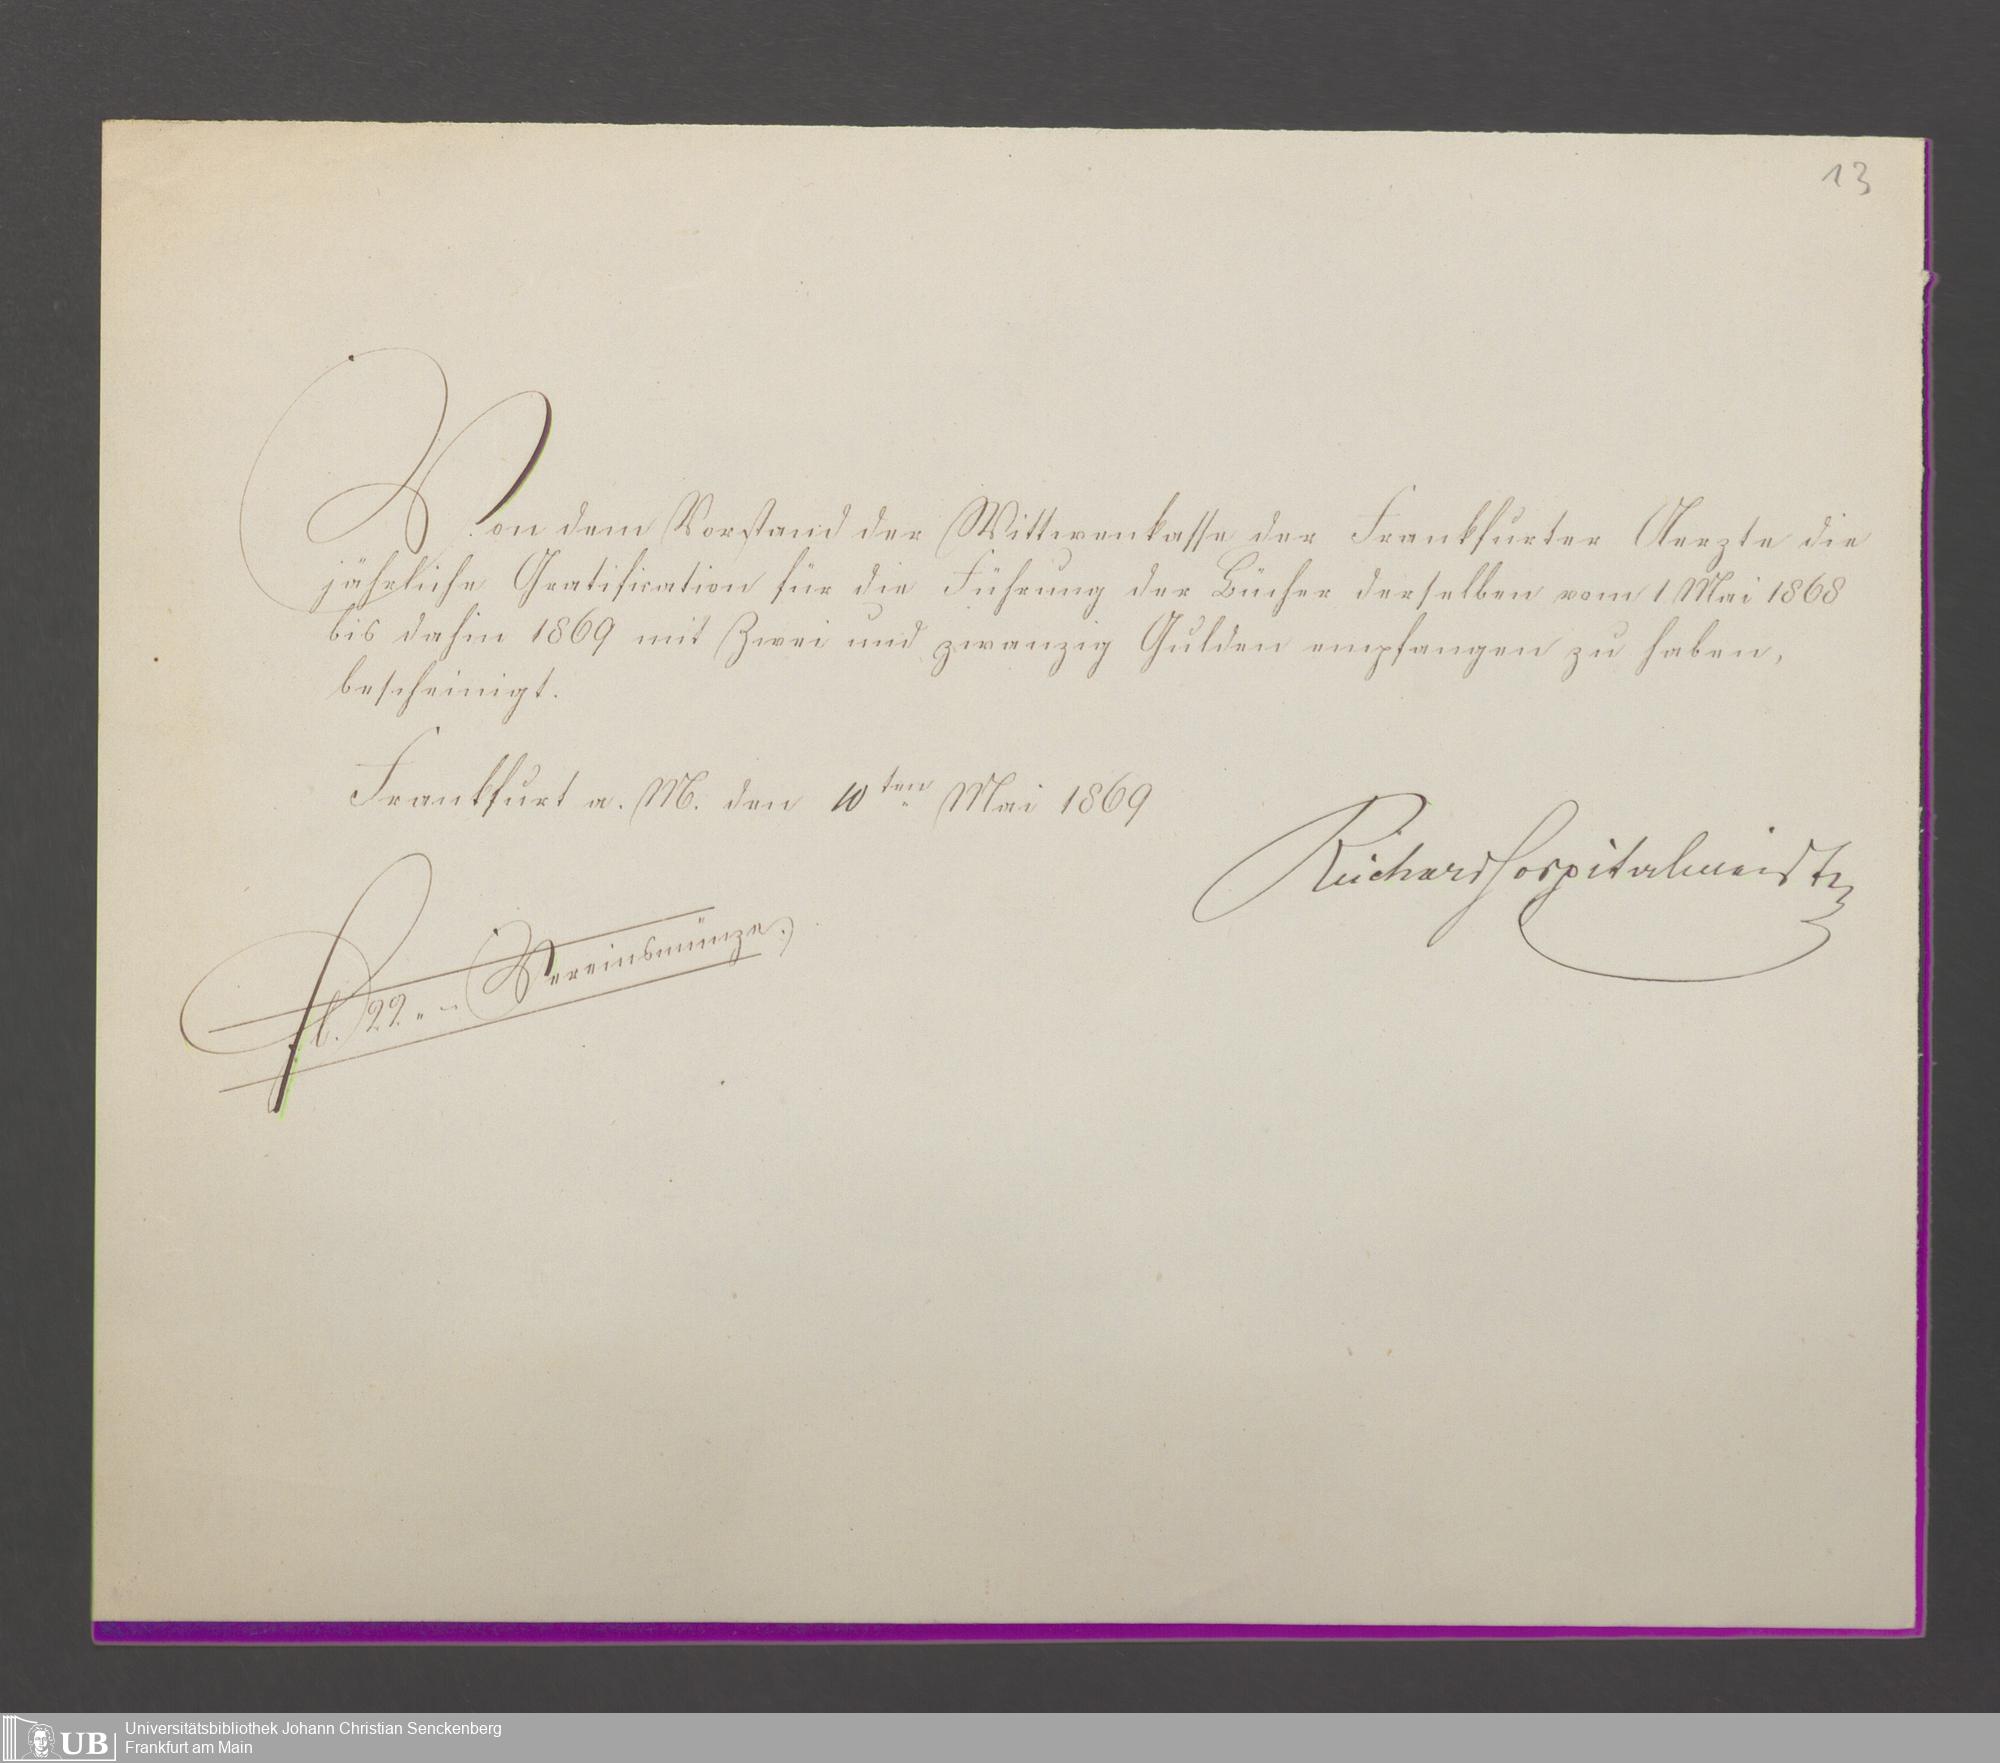 13
Von dem Vorstand der Wittwenkasse der Frankfurter Aerzte die
jährliche Gratification für die Führung der Bücher derselben vom 1 Mai 1868
bis dahin 1869 mit Zwei und zwanzig Gulden empfangen zu haben,
bescheinigt.
Frankfurt a. M. den 10ten Mai 1869
Reichard Hospitalmeister
fl. 22 „ – Vereinsmünze.
UB
Universitätsbibliothek Johann Christian Senckenberg
Frankfurt am Main